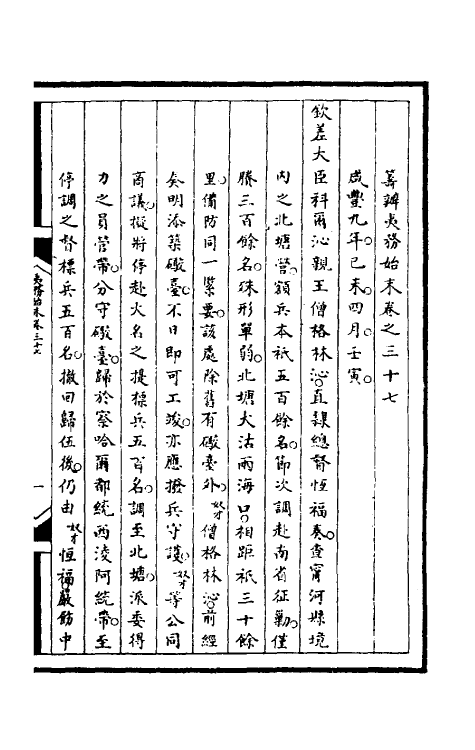 籌辦夷務始末卷之三十七
咸豐九年。己未。四月。壬寅。
欽差大臣科爾沁親王僧格林沁。直隸總督恆福奏。查甯河縣境
內之北塘營。額兵本祇五百餘名。節次調赴南省征勦。僅
賸三百餘名。殊形單弱。北塘大沽兩海口。相距祇三十餘
里。備防同一緊要。該處除舊有礮臺外。奴才僧格林沁。前經
奏明添築礮臺。不日即可工竣。亦應撥兵守護。奴才等公同
商議。擬將停赴大名之提標兵五百名。調至北塘。派委得
力之員管帶。分守礮臺。歸於察哈爾都統西淩阿統帶。至
停調之督標兵五百名。撤回歸伍後。仍由奴才恆福嚴飭中
夷務始末卷三十七
一